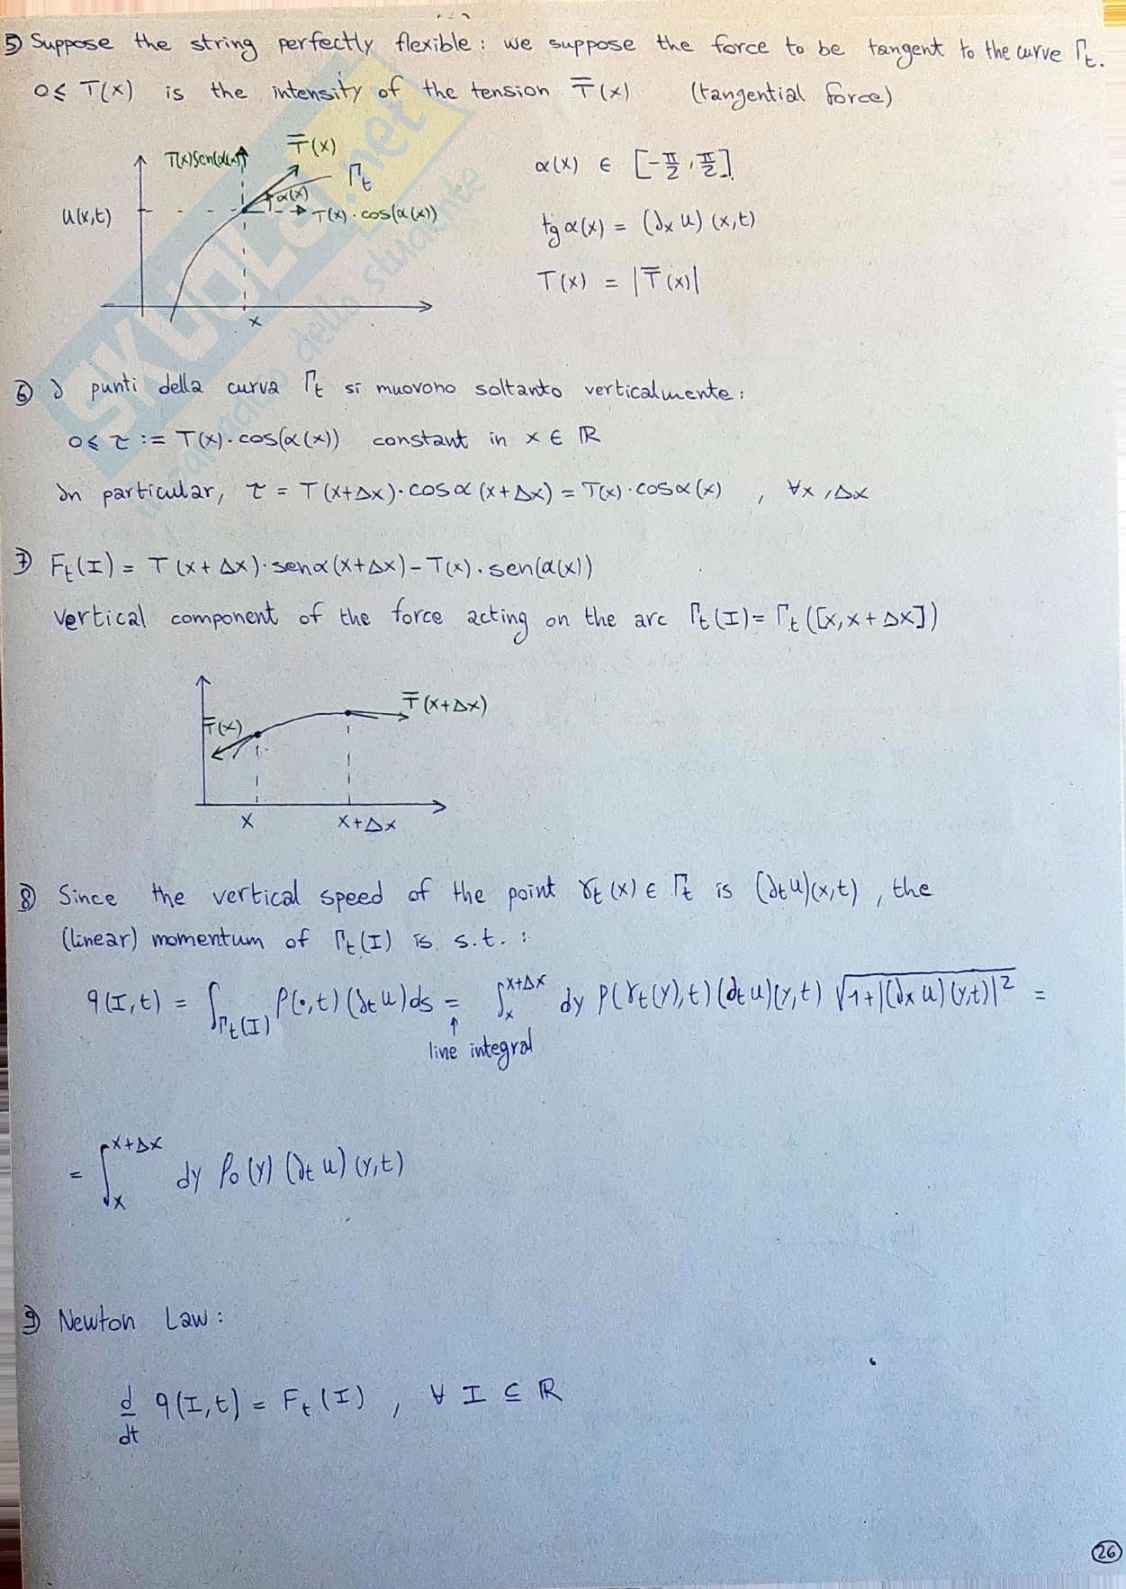 ⑤ Suppose the string perfectly flexible: we suppose the force to be tangent to the curve Γt.
0≤ T(x) is the intensity of the tension T̄(x) (tangential force)
T(x)sen(α(x))
T̄(x)
Γt
α(x)
u(x,t)
T(x)·cos(α(x))
x
α(x) ∈ [-π/2, π/2]
tg α(x) = (∂x u)(x,t)
T(x) = |T̄(x)|
SKUOLA.net
dello studente
⑥ I punti della curva Γt si muovono soltanto verticalmente:
0≤ τ := T(x)·cos(α(x)) constant in x ∈ ℝ
In particular, τ = T(x+Δx)·cosα(x+Δx) = T(x)·cosα(x) , ∀x,Δx
⑦ Ft(I) = T(x+Δx)·senα(x+Δx) - T(x)·sen(α(x))
vertical component of the force acting on the arc Γt(I) = Γt([x,x+Δx])
T̄(x)
T̄(x+Δx)
x
x+Δx
⑧ Since the vertical speed of the point γt(x) ∈ Γt is (∂tu)(x,t), the
(linear) momentum of Γt(I) is s.t.:
q(I,t) = ∫Γt(I) ρ(·,t)(∂tu)ds = ∫x^x+Δx dy ρ(γt(y),t)(∂tu)(y,t) √1+|(∂xu)(y,t)|² =
↑
line integral
= ∫x^x+Δx dy ρ0(y)(∂tu)(y,t)
⑨ Newton Law:
d/dt q(I,t) = Ft(I) , ∀ I ⊆ ℝ
26